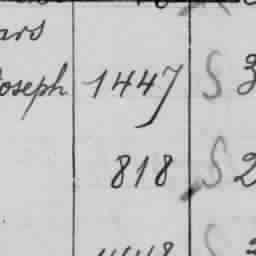 ars
oseph 1447 S 3
818 S 2